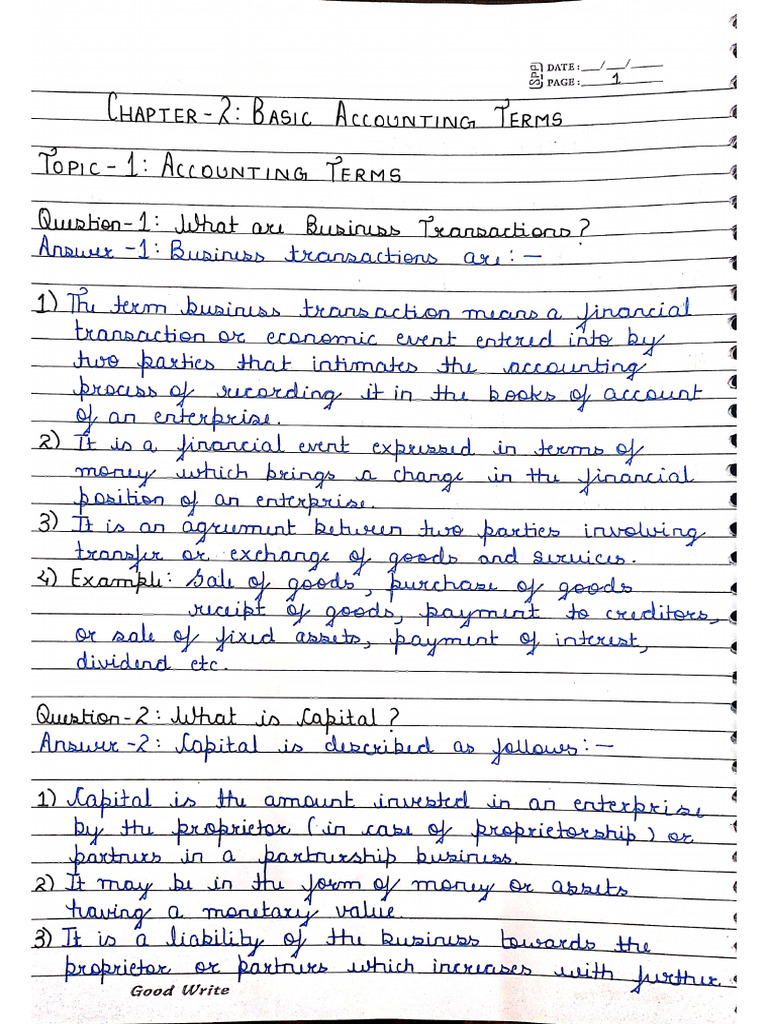 SPP DATE: __/__/__
PAGE: 1
CHAPTER-2: BASIC ACCOUNTING TERMS
TOPIC-1: ACCOUNTING TERMS
Question-1: What are Business Transactions?
Answer-1: Business transactions are:-
1) The term business transaction means a financial
transaction or economic event entered into by
two parties that intimates the accounting
process of recording it in the books of account
of an enterprise.
2) It is a financial event expressed in terms of
money which brings a change in the financial
position of an enterprise.
3) It is an agrument between two parties involving
transfer or exchange of goods and services.
4) Example: Sale of goods, purchase of goods
receipt of goods, payment to creditors,
or sale of fixed assets, payment of interest,
dividend etc.
Question-2: What is Capital?
Answer-2: Capital is described as follows:-
1) Capital is the amount invested in an enterprise
by the proprietor (in case of proprietorship) or
partners in a partnership business.
2) It may be in the form of money or assets
having a monetary value.
3) It is a liability of the business towards the
proprietor or partners which increases with further
Good Write